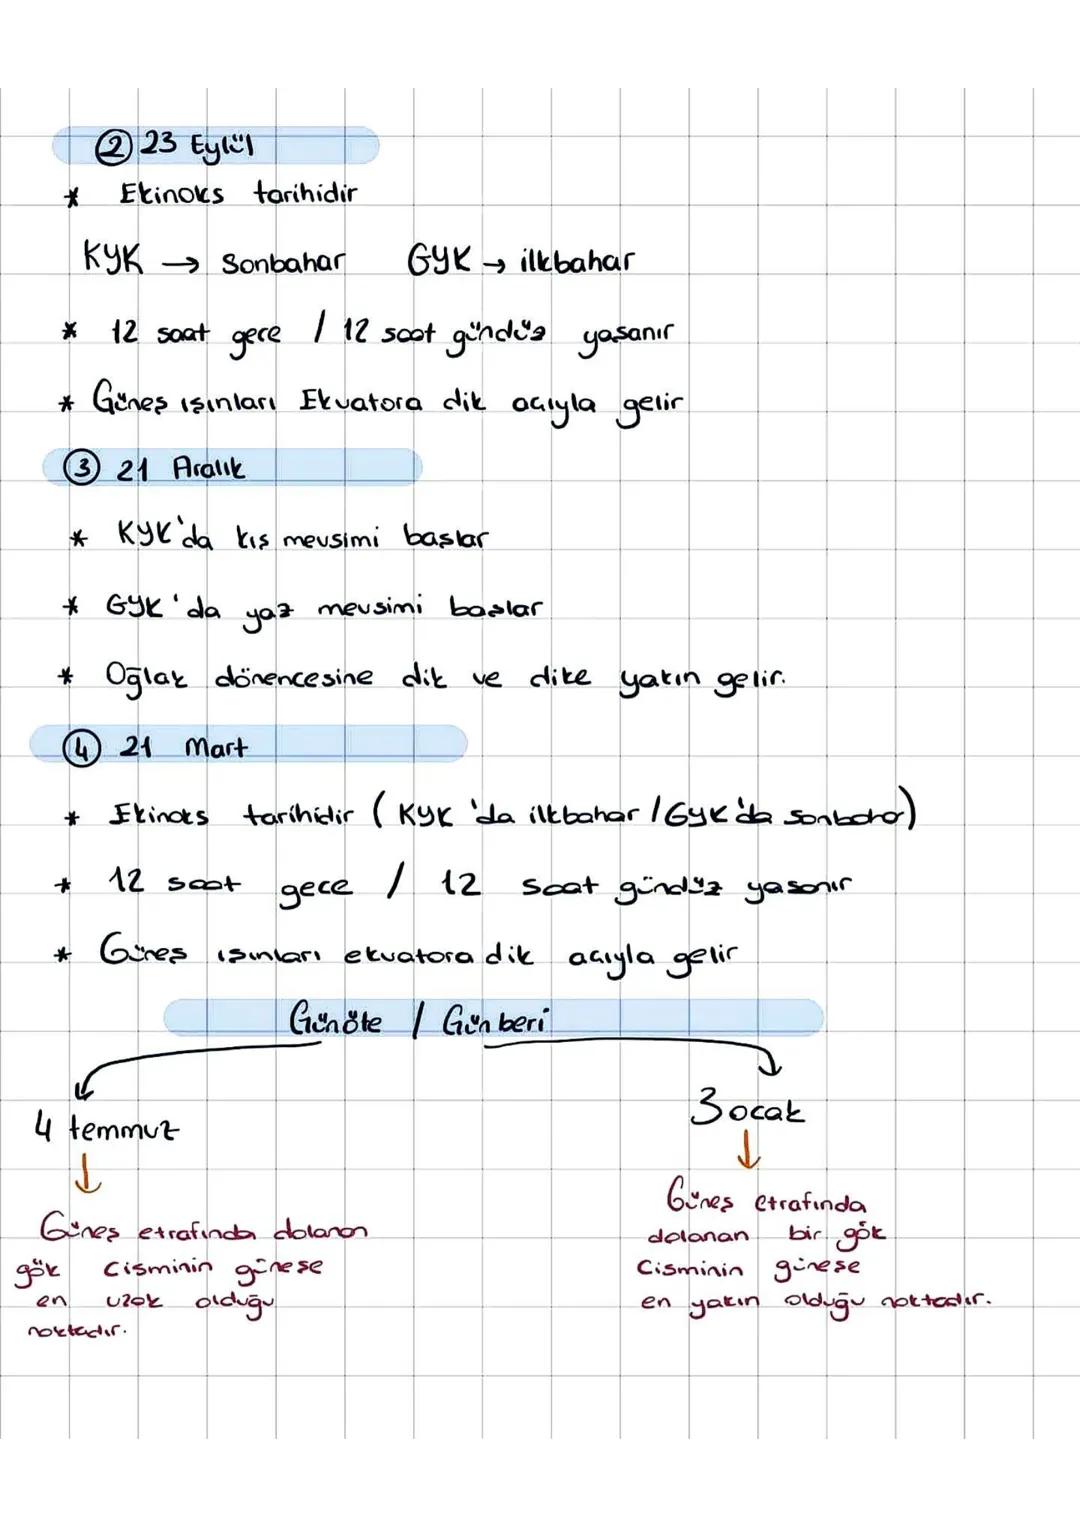 ② 23 Eylül
* Ekinoks tarihidir
KYK → Sonbahar GYK → ilkbahar
* 12 saat gece / 12 saat gündüz yaşanır
* Güneş ışınları Ekvatora dik açıyla gelir
③ 21 Aralık
* KYK'da kış mevsimi başlar
* GYK'da yaz mevsimi başlar
* Oğlak dönencesine dik ve dike yakın gelir.
④ 21 Mart
* Ekinoks tarihidir (KYK'da ilkbahar / GYK'da sonbahar)
* 12 saat gece / 12 saat gündüz yaşanır
* Güneş ışınları ekvatora dik açıyla gelir
Günöte / Günberi
4 temmuz
↓
Güneş etrafında dolanan
gök cisminin güneşe
en uzak olduğu
noktadır.
3 ocak
↓
Güneş etrafında
dolanan bir gök
Cisminin güneşe
en yakın olduğu noktadır.